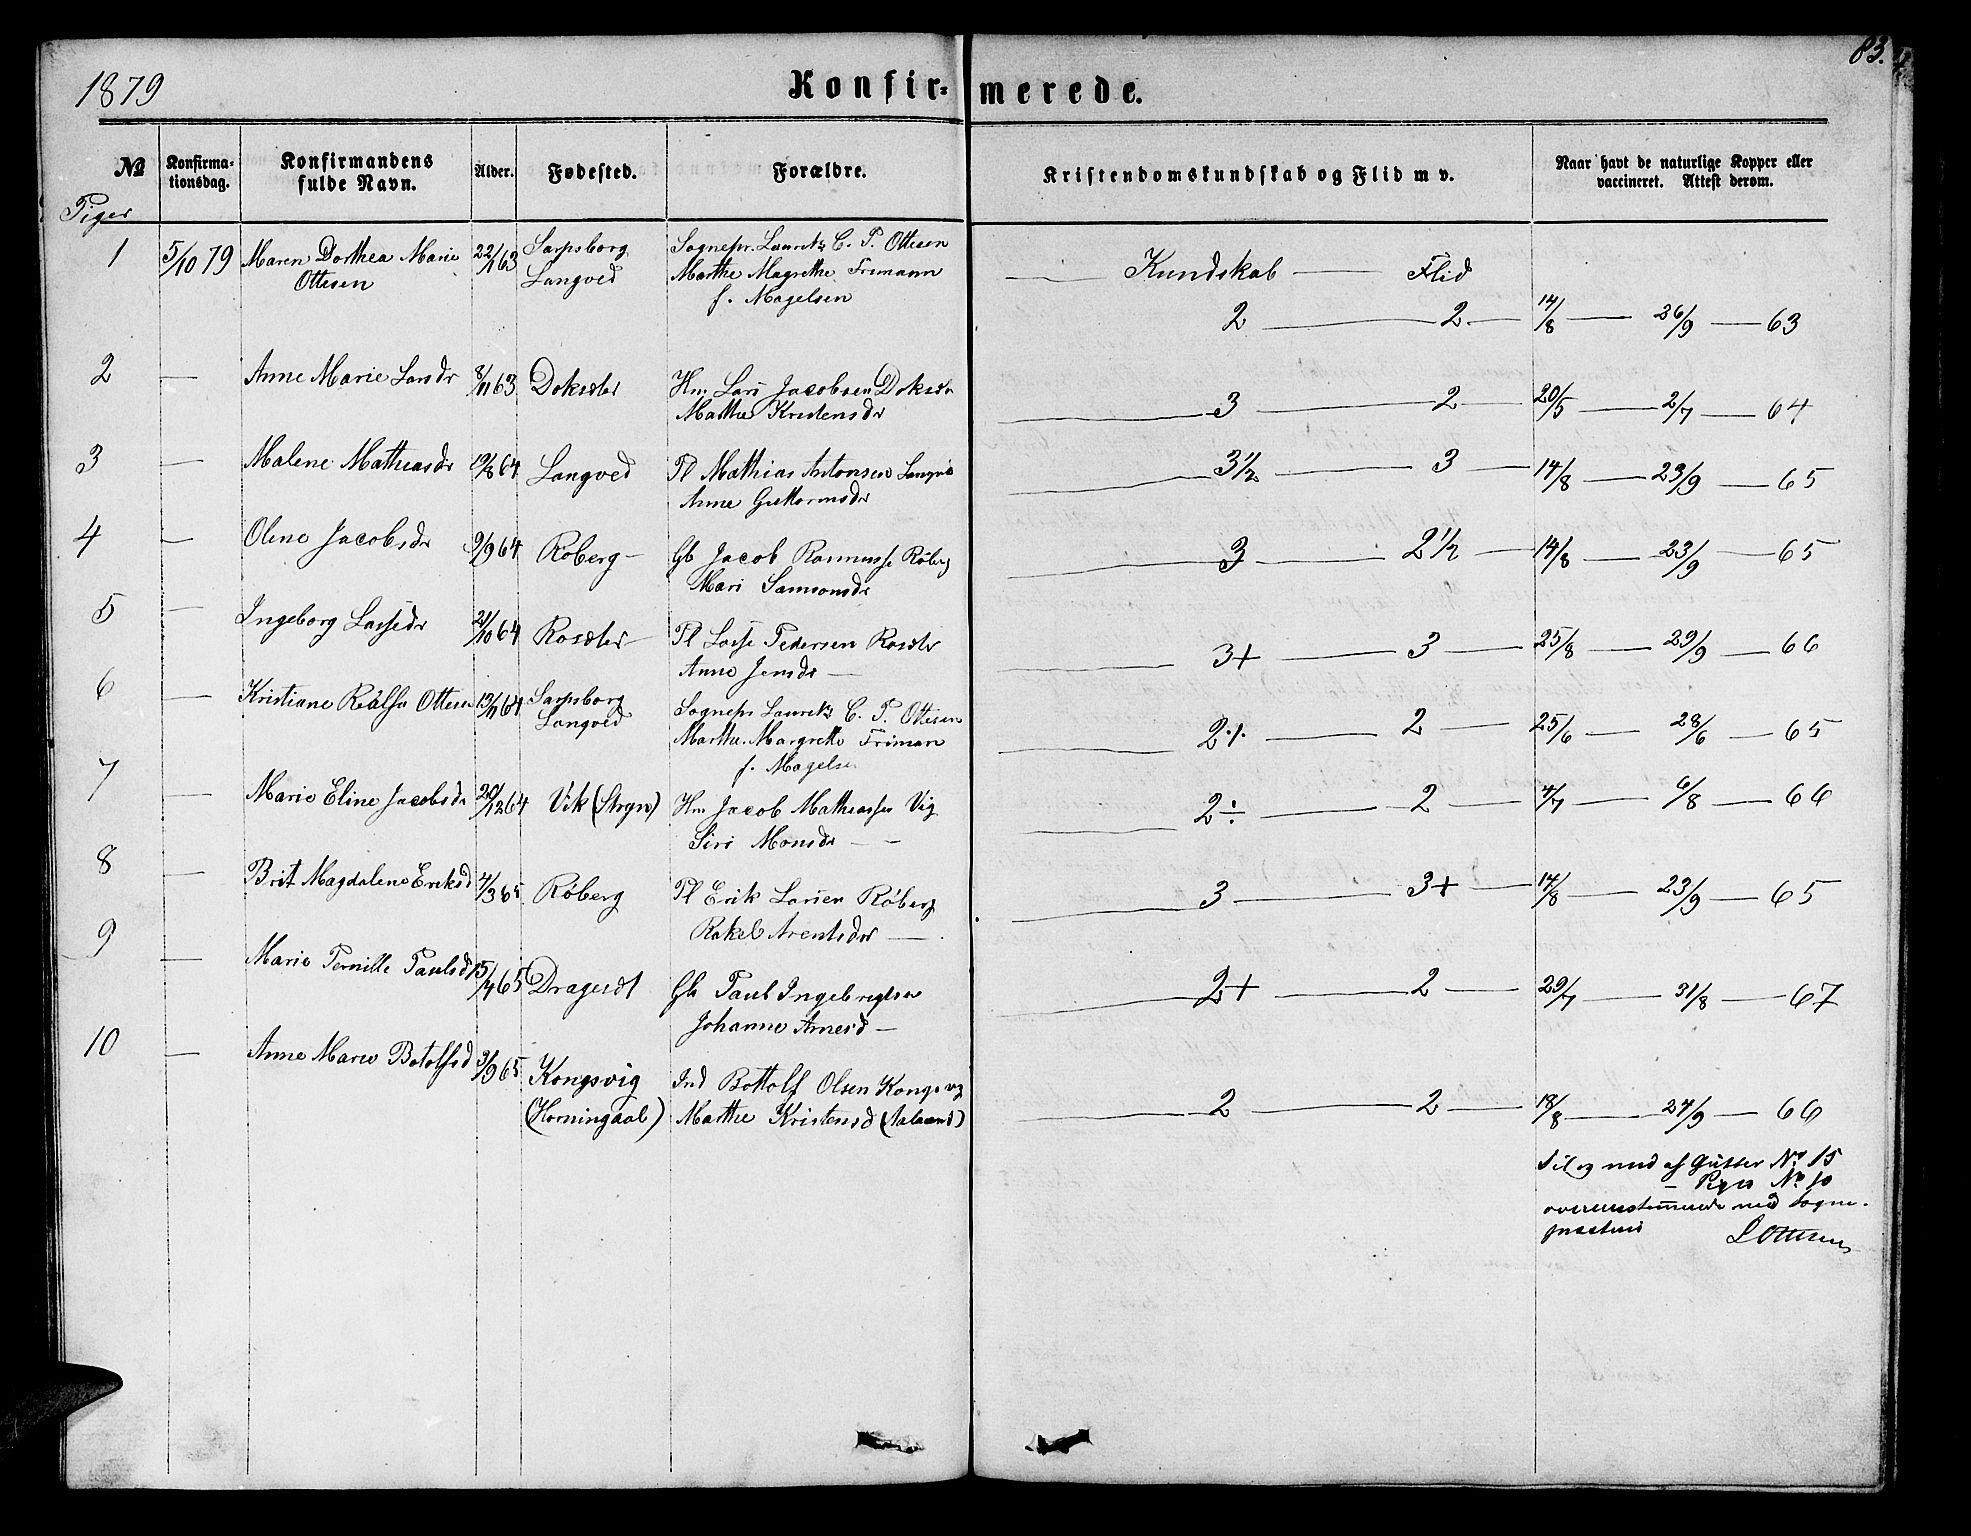 1879 Konfir- merede. 83.
№ Konfirma-tionsdag. Konfirmandens fulde Navn. Alder. Fødested. Forældre. Kristendomskundskab og Flid m v. Naar havt de naturlige Kopper eller vaccineret. Attest derom.
Piger
1 5/10 79 Maren Dorthea Marie 22/1 63 Sarpsborg Sognepr. Lauretz C. P. Ottesen
Ottesen Langved Marthe Magrethe Frimann Kundskab — Flid
f. Magelsen 2 — 2 — 14/8 — 26/9 — 63
2 — Anne Marie Larsdr 8/11 63 Doksæter Hm Lars Jacobsen Doksæter 3 — 2 — 20/5 — 2/7 — 64
Marthe Kristensdr
3 — Malene Mathiasdr 19/8 64 Langved Pl Mathias Antonsen Langved 3½ — 3 — 14/8 — 23/9 — 65
Anne Guttormsdr
4 — Oline Jacobsdr 9/9 64 Røberg — Gb Jacob Rasmusse Røberg 3 — 2½ — 14/8 — 23/9 — 65
Mari Samsonsdr
5 — Ingeborg Lassedr 21/10 64 Rosæter — Pl Lasse Pedersen Rosæter 3+ — 3 — 25/8 — 29/9 — 66
Anne Jensdr —
6 — Kristiane Ottesen 13/11 64 Sarpsborg Sognepr Lauretz C. P. Ottesen 2·/· — 2 — 25/6 — 28/6 — 65
Langved Marthe Margrethe Friman
f. Magelse
7 — Marie Eline Jacobsdr 20/12 64 Vik (Stryn) Hm Jacob Mathiasse Vig 2÷ — 2 — 4/7 — 6/8 — 66
Siri Monsdr — —
8 — Brit Magdalene Eriksd 4/3 65 Røberg Pl Erik Larsen Røberg 3 — 3+ — 14/8 — 23/9 — 65
Rakel Arentsdr —
9 — Marie Pernille Paulsd 15/7 65 Dragesdt Gb Paul Ingebrigtsen 2+ — 2 — 29/7 — 31/8 — 67
Johanne Arnesd —
10 — Anne Marie Botolfsd 3/9 65 Kongsvig Ind Bottolf Olsen Kongsvig 2 — 2 — 18/8 — 24/9 — 66
(Horningdal) Marthe Kristensd
Til og med af Gutter No 15
— Piger No 10
overensstemmende med Sogne-
præstens
L Ottesen